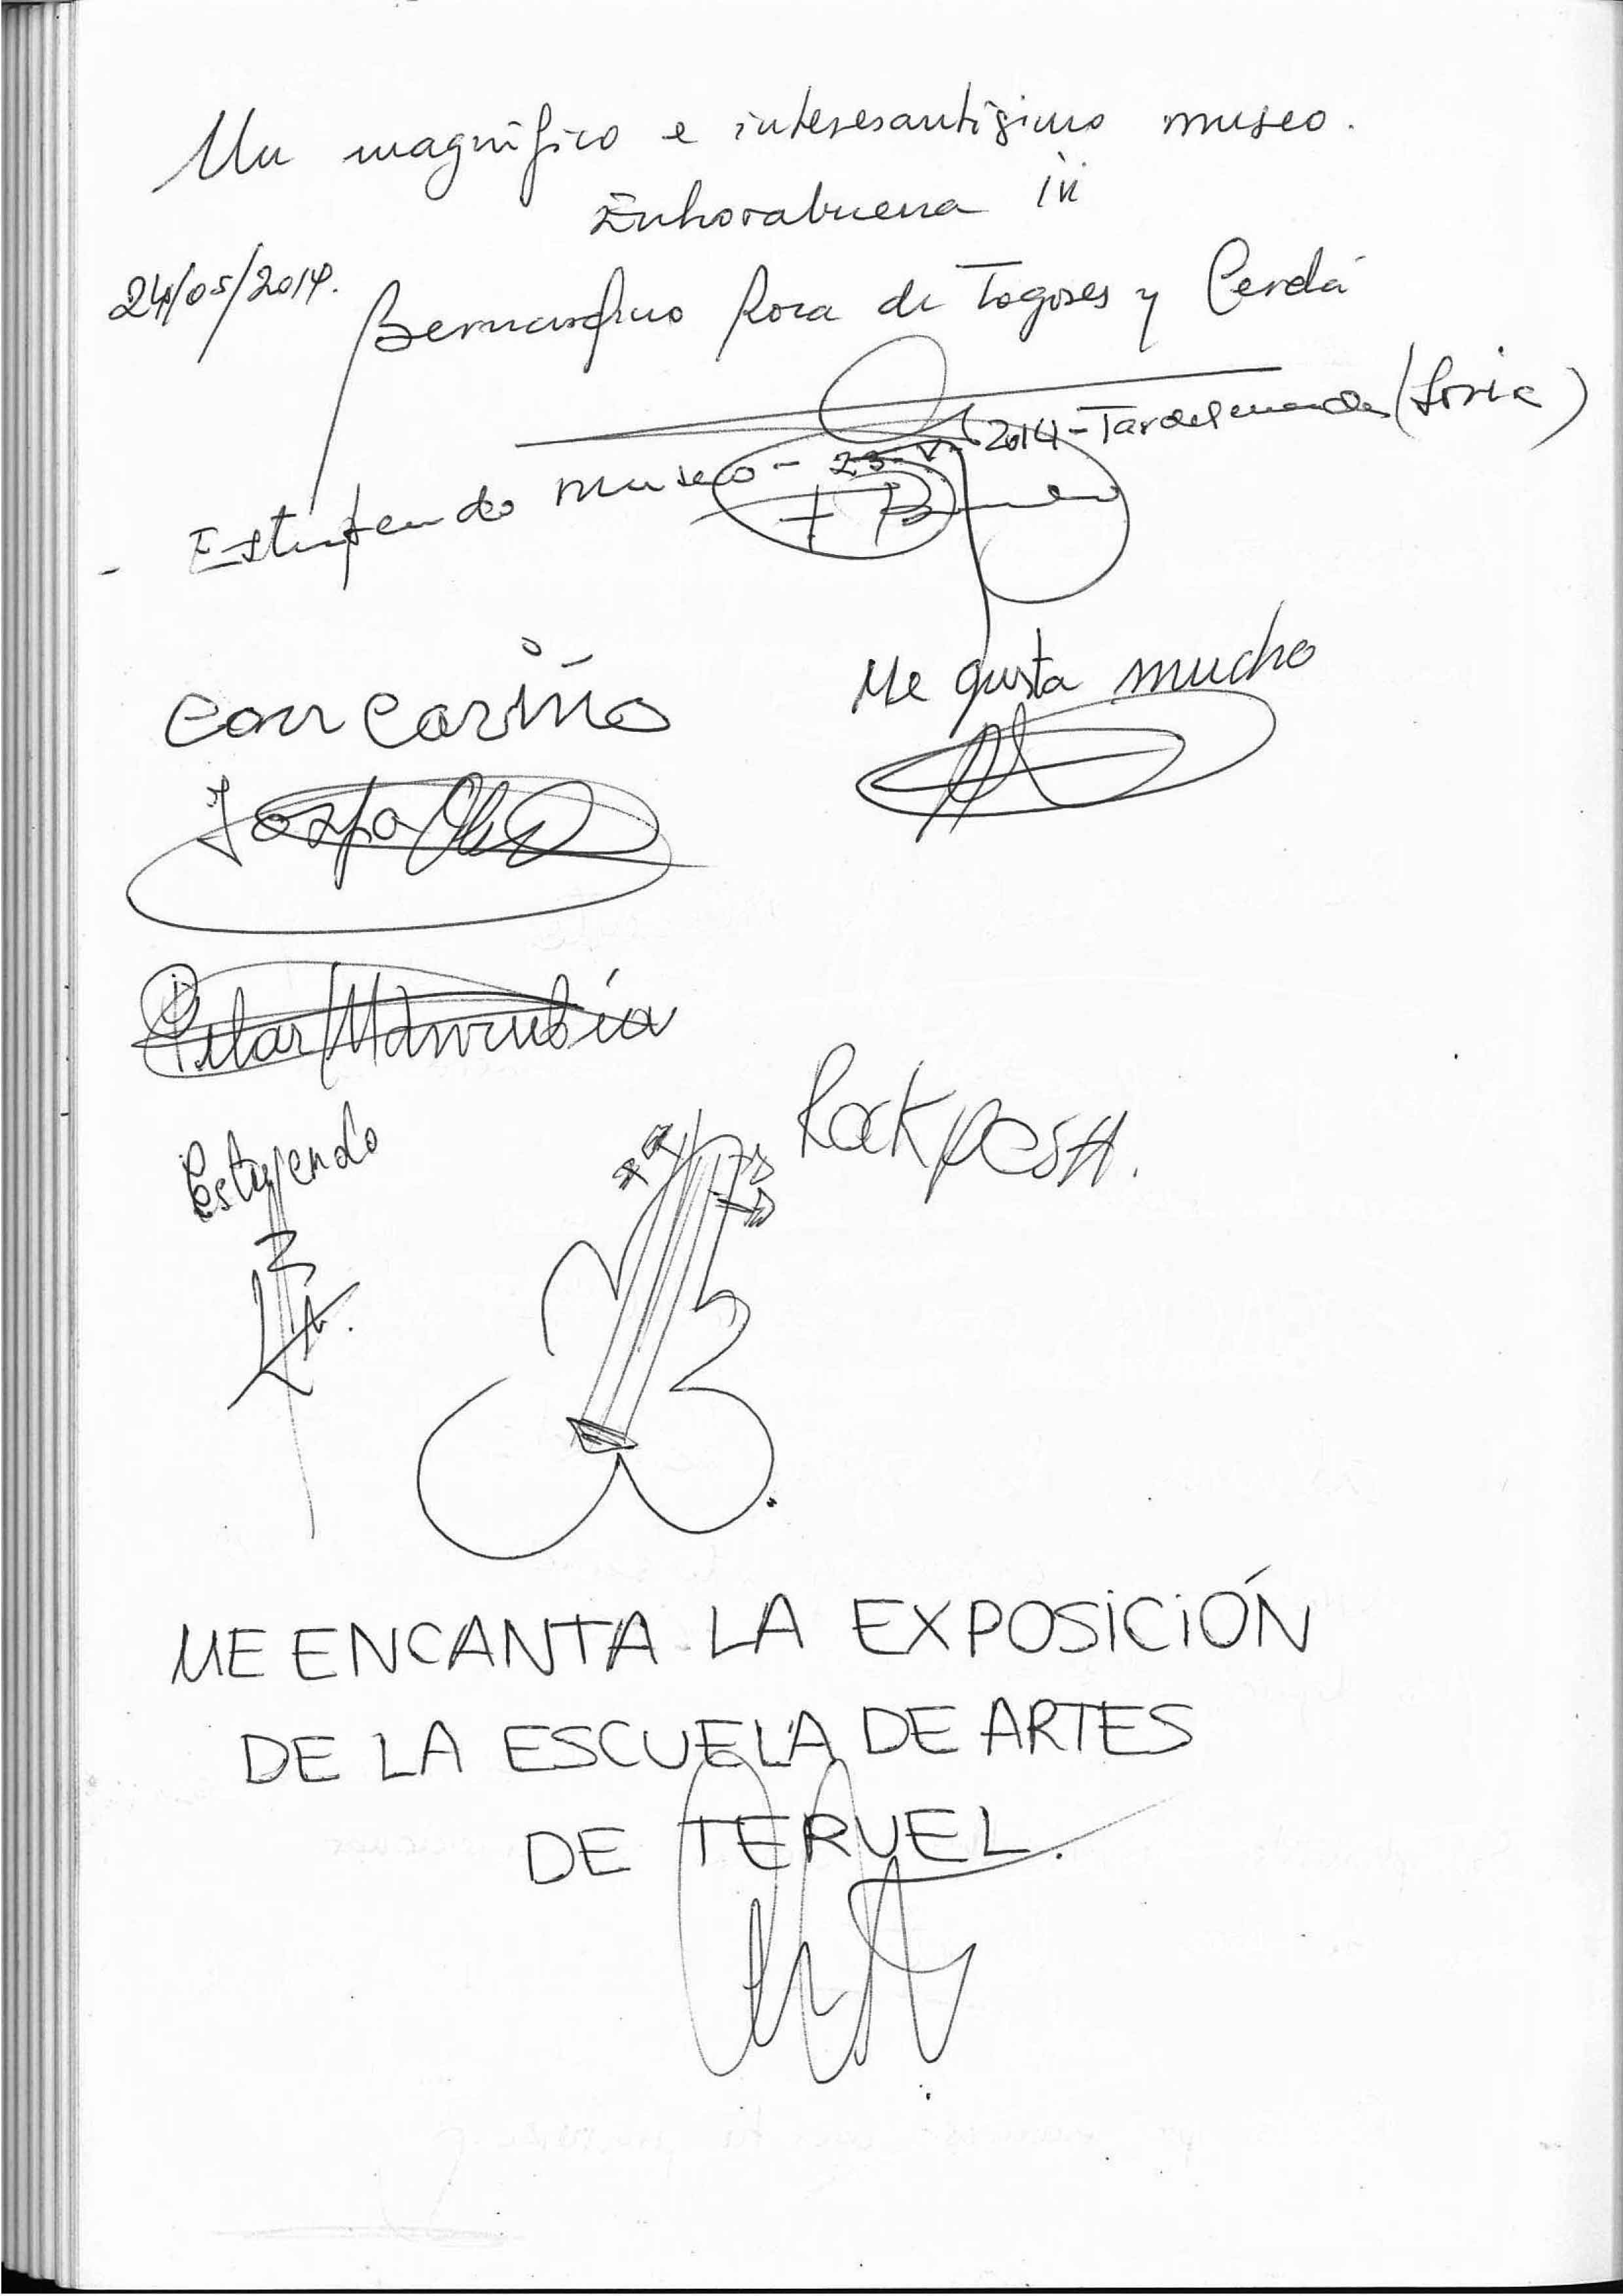 Un magnífico e interesantísimo museo.
Enhorabuena ¡¡¡
24/05/2014.
Bernardino Roca de Togores y Cerdá
- Estupendo museo - 23-V-2014 - Tardelcuende (Soria)
Con Cariño
Me gusta mucho
Pilar Manrubia
Estupendo
Rock
ME ENCANTA LA EXPOSICIÓN
DE LA ESCUELA DE ARTES
DE TERUEL.